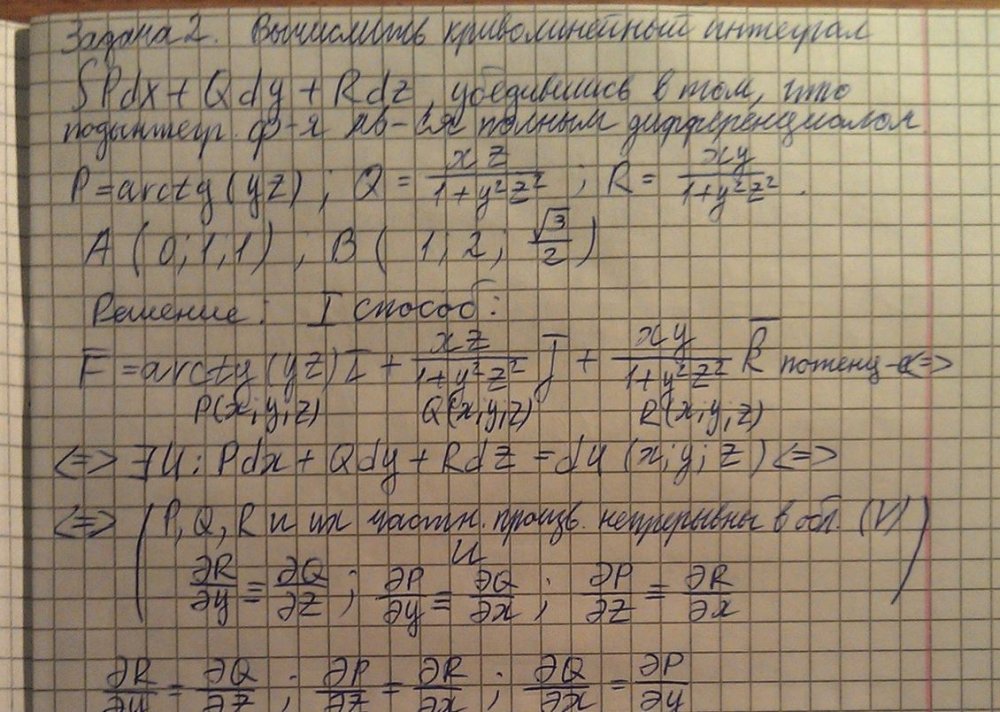 Задача 2. Вычислить криволинейный интеграл
∫Pdx + Qdy + Rdz, убедившись в том, что
подынтегр. ф-я яв-ся полным дифференциалом
P = arctg(yz); Q = xz/(1+y²z²); R = xy/(1+y²z²).
A(0;1;1); B(1;2;√3/2)
Решение: I способ:
F̅ = arctg(yz)i̅ + xz/(1+y²z²) j̅ + xy/(1+y²z²) k̅ потенц-о <=>
P(x;y;z) Q(x;y;z) R(x;y;z)
<=> ∃U: Pdx + Qdy + Rdz = dU(x;y;z) <=>
<=> (P, Q, R и их частн. произв. непрерывны в обл. (V)
и
∂R/∂y ≡ ∂Q/∂z; ∂P/∂y ≡ ∂Q/∂x; ∂P/∂z ≡ ∂R/∂x)
∂R/∂y = ∂Q/∂z; ∂P/∂z = ∂R/∂x; ∂Q/∂x = ∂P/∂y